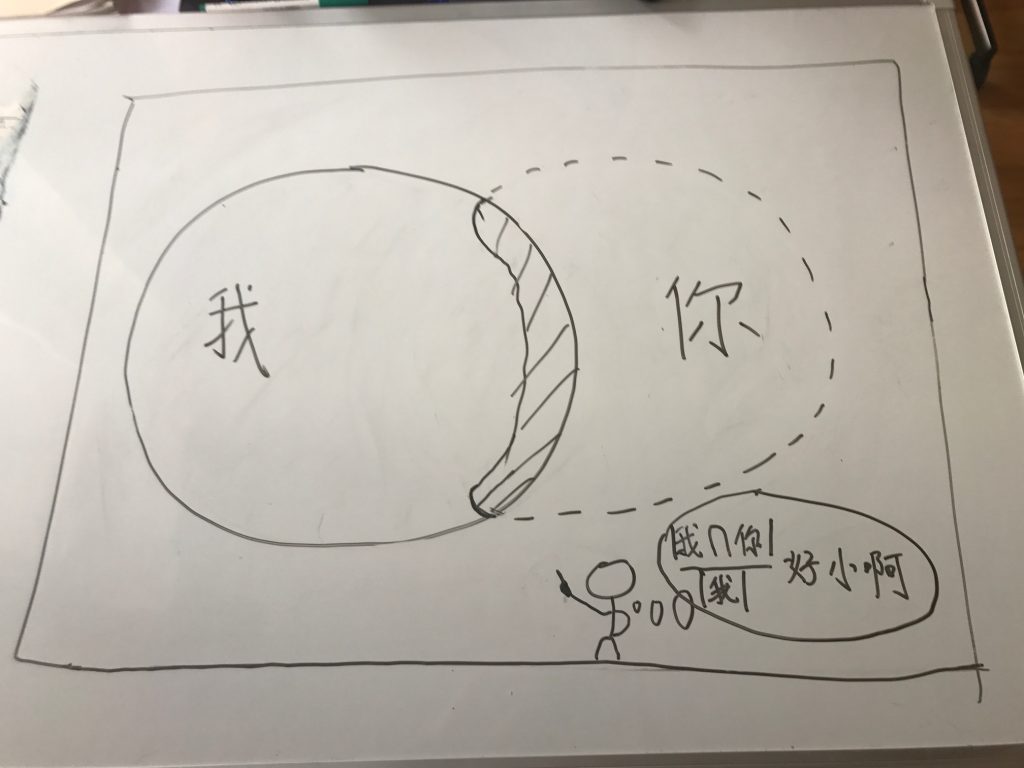 我
你
|我∩你|
|我|
好小啊